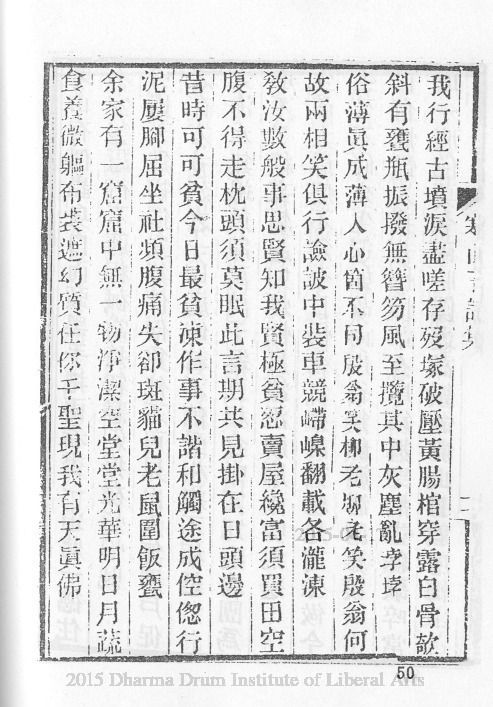 我行經古墳淚盡嗟存歿塚破壓黃腸棺穿露白骨欹
斜有甕瓶掁撥無簪笏風至攬其中灰塵亂𡋯𡋯
俗薄眞成薄人心箇不同殷翁笑柳老柳老笑殷翁何
故兩相笑俱行譣詖中裝車競嵽嵲翻載各瀧涷
敎汝數般事思賢知我賢極貧忍賣屋纔富須買田空
腹不得走枕頭須莫眠此言期共見掛在日頭邊
昔時可可貧今日最貧凍作事不諧和觸途成倥傯行
泥屢腳屈坐社頻腹痛失卻斑貓兒老鼠圍飯甕
余家有一窟窟中無一物淨潔空堂堂光華明日月蔬
食養微軀布裘遮幻質任你千聖現我有天眞佛
寒山子詩集
50
2015 Dharma Drum Institute of Liberal Arts